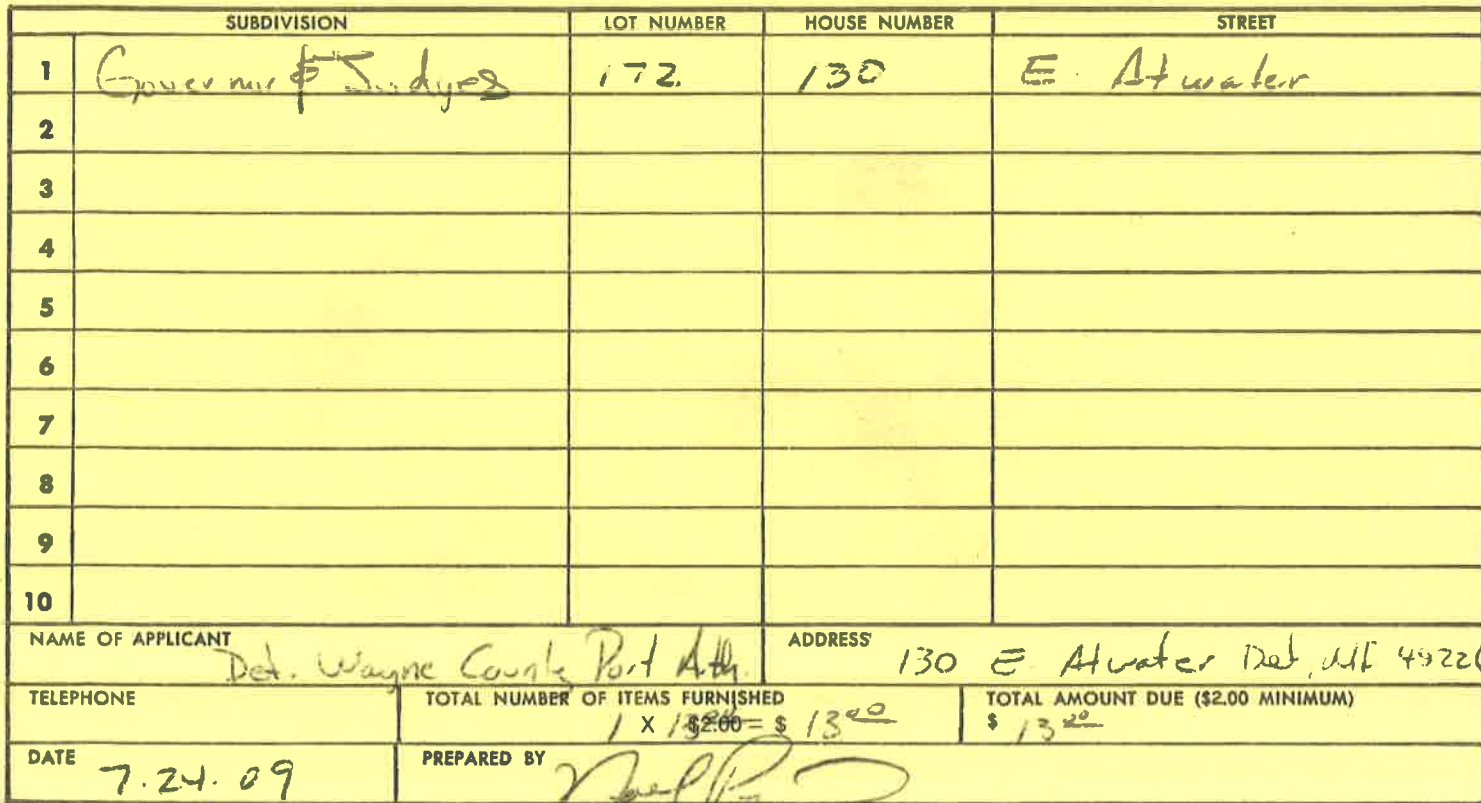 SUBDIVISION LOT NUMBER HOUSE NUMBER STREET
1 Governor & Judges 172 130 E. Atwater
2
3
4
5
6
7
8
9
10
NAME OF APPLICANT Det. Wayne County Port Ath. ADDRESS 130 E. Atwater Det, MI
TELEPHONE TOTAL NUMBER OF ITEMS FURNISHED TOTAL AMOUNT DUE ($2.00 MINIMUM)
1 X $2.00 = $ 13.00 $ 13.00
DATE 7.24.09 PREPARED BY